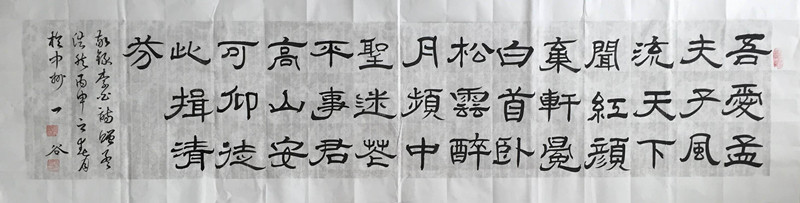 吾愛孟
夫子風
流天下
聞紅顏
棄軒冕
白首臥
松雲醉
月頻中
聖迷花
不事君
高山安
可仰徒
此揖清
芬
敬錄李白詩贈孟
浩然丙申之春月
於中州一谷